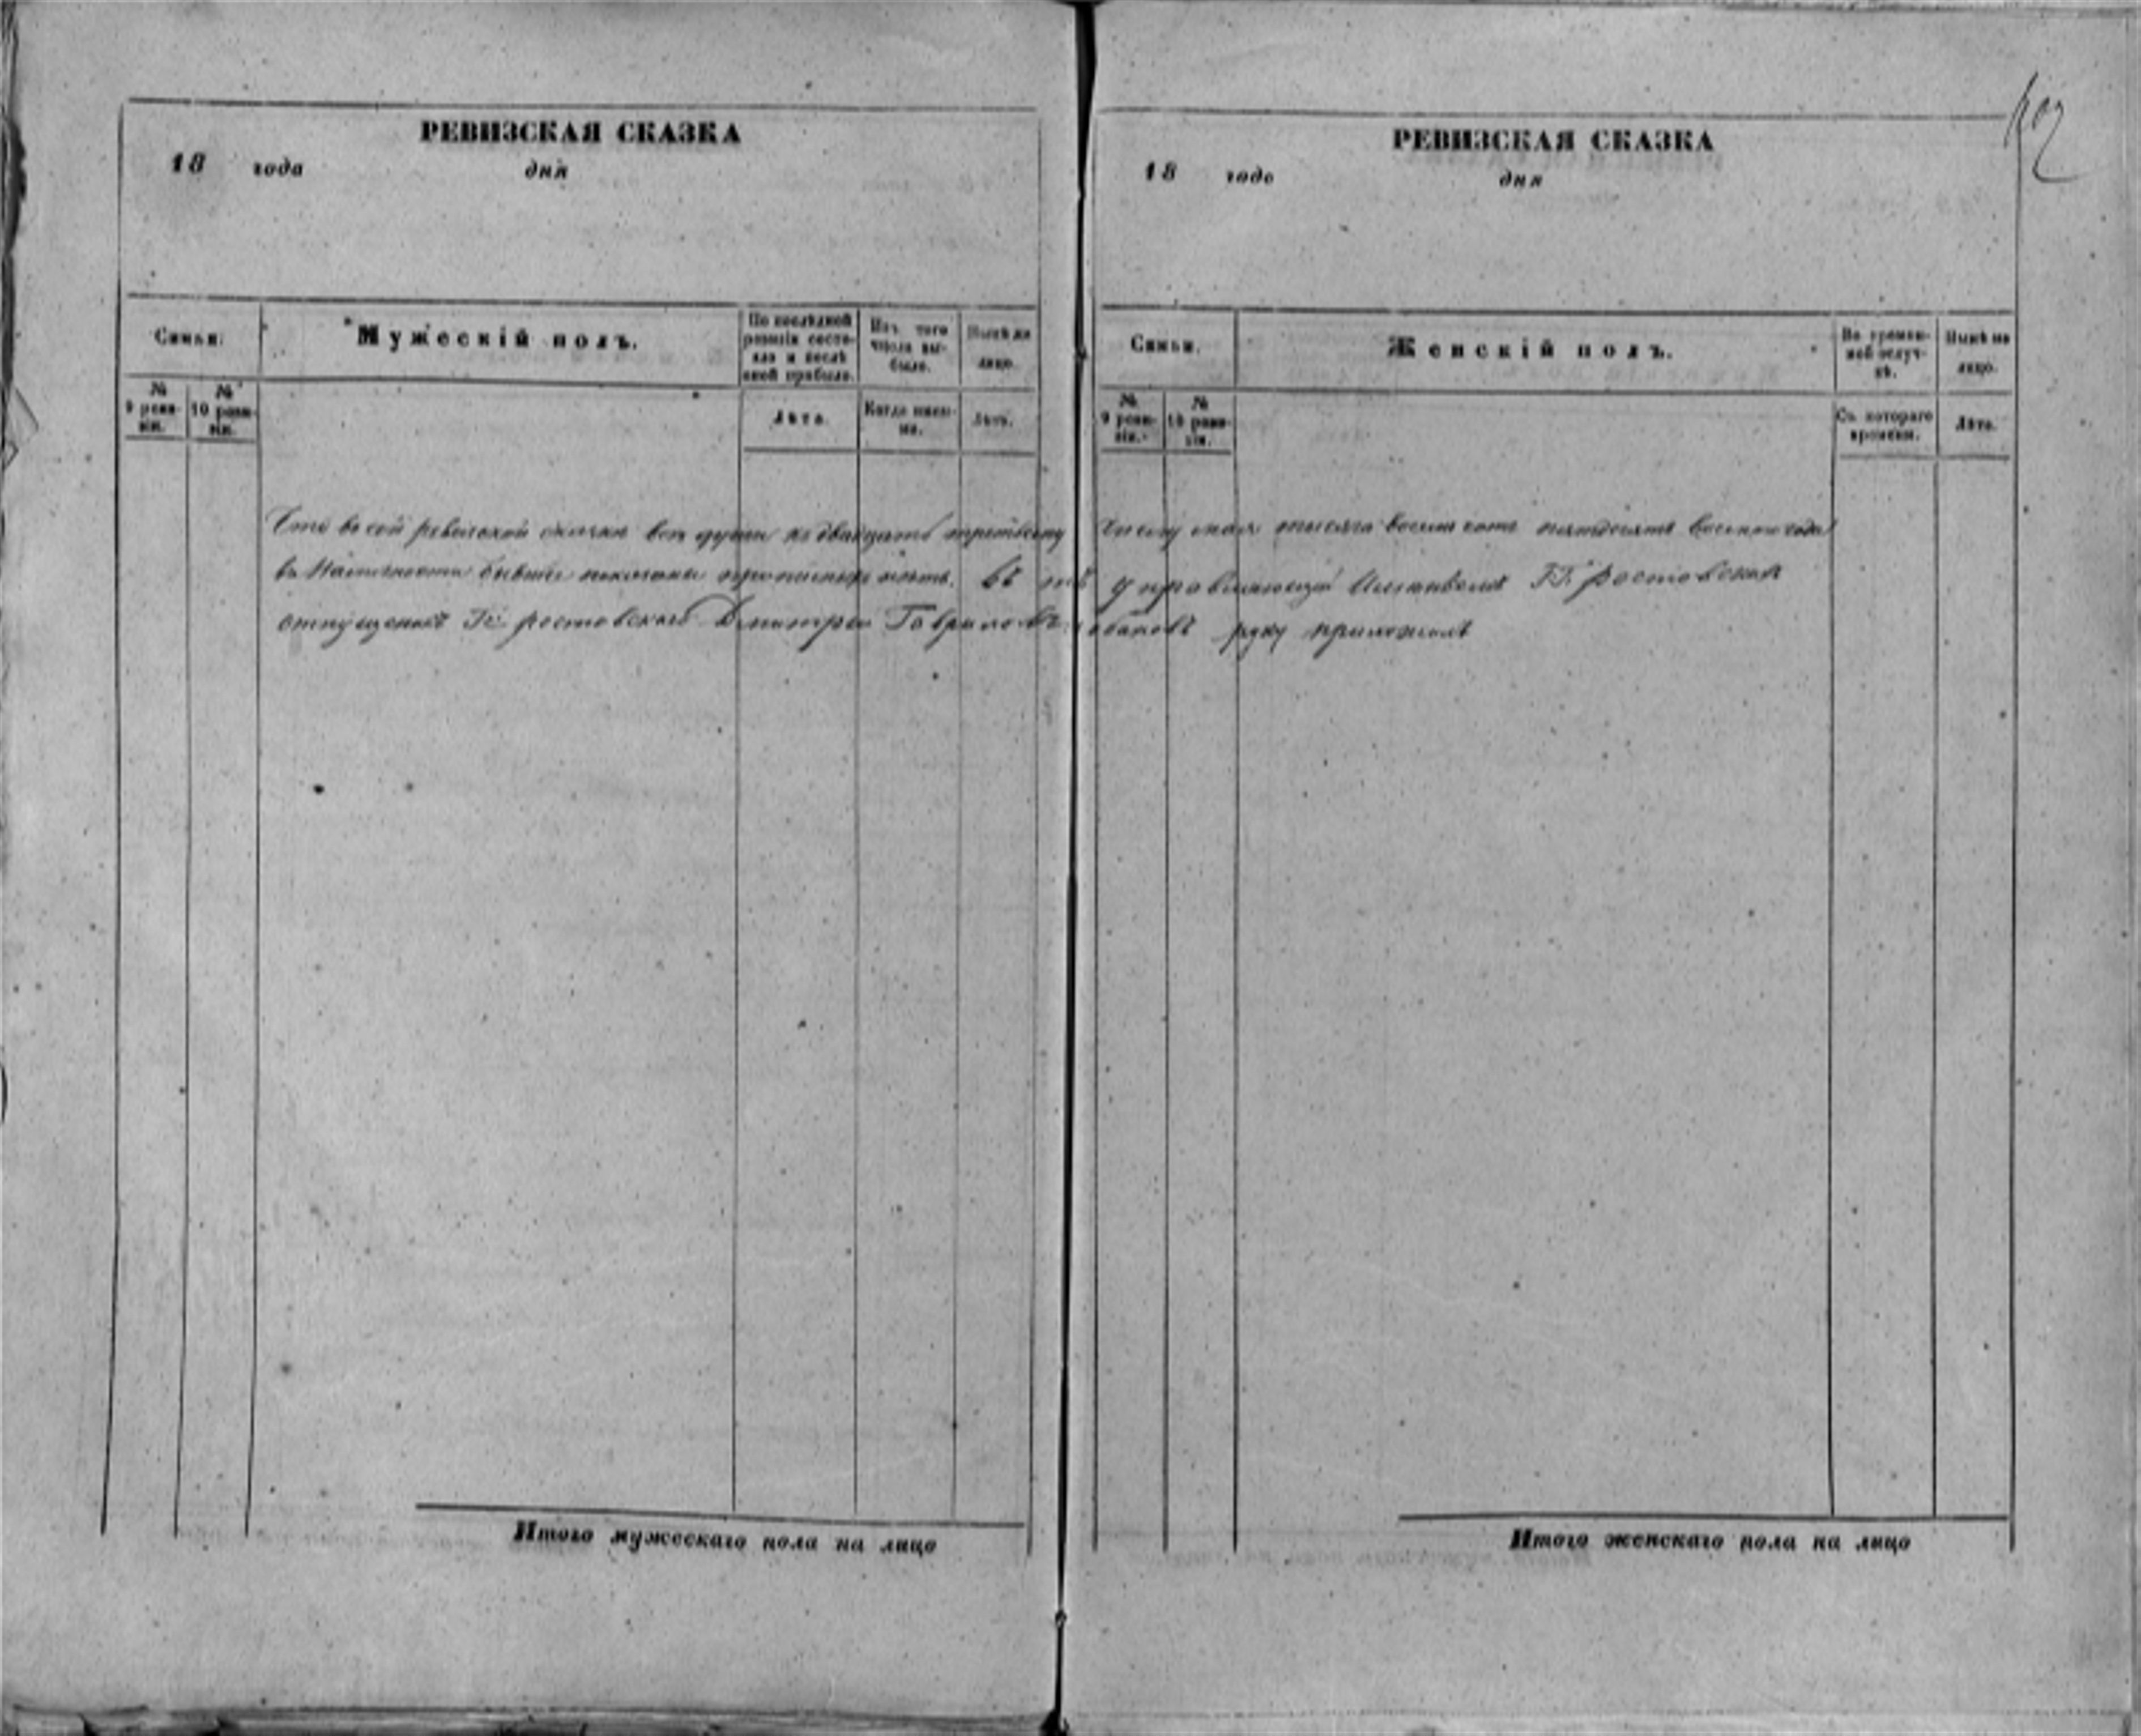 РЕВИЗСКАЯ СКАЗКА
18 года дня
Семьи.
Мужескій полъ.
По послѣдней ревизіи состояло и послѣ оной прибыло.
Изъ того числа выбыло.
Нынѣ на лицо.
№ 9 ревизіи.
№ 10 ревизіи.
Лѣта.
Когда именно.
Лѣта.
Что въ сей ревизской сказки всѣ души къ двадцать третьему
въ наличности бывши показаны прописныхъ нѣтъ. въ
отпущеникъ Гг. ростовскаго Дмитрей Гавриловъ
Итого мужескаго пола на лицо
РЕВИЗСКАЯ СКАЗКА
18 года дня
102
Семьи.
Женскій полъ.
Во временной отлучкѣ.
Нынѣ на лицо.
№ 9 ревизіи.
№ 10 ревизіи.
Съ котораго времени.
Лѣта.
числу мая тысяча восемь сотъ пятдесятъ восьмаго года
управляющій Имѣніемъ ГГ. ростовскаго
руку приложилъ
Итого женскаго пола на лицо